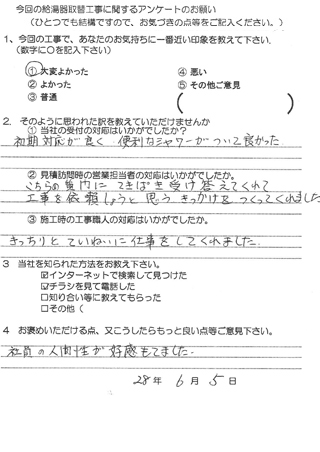 今回の給湯器取替工事に関するアンケートのお願い
(ひとつでも結構ですので、お気づきの点等をご記入ください。)
1、今回の工事で、あなたのお気持ちに一番近い印象を教えて下さい。
(数字に○を記入下さい)
①大変よかった ④悪い
②よかった ⑤その他ご意見
③普通 ( )
2. そのように思われた訳を教えていただけませんか
①当社の受付の対応はいかがでしたか?
初期対応が良く 便利なシャワーがついて良かった
②見積訪問時の営業担当者の対応はいかがでしたか。
こちらの質問に てきぱき受け答えてくれて
工事を依頼しようと思う きっかけを つくってくれました
③施工時の工事職人の対応はいかがでしたか。
きっちりと ていねいに仕事をしてくれました.
3 当社を知られた方法をお教え下さい。
☑インターネットで検索して見つけた
☑チラシを見て電話した
□知り合い等に教えてもらった
□その他(
4 お褒めいただける点、又こうしたらもっと良い点等ご意見下さい。
社員の人間性が 好感もてました.
28年 6月 5日